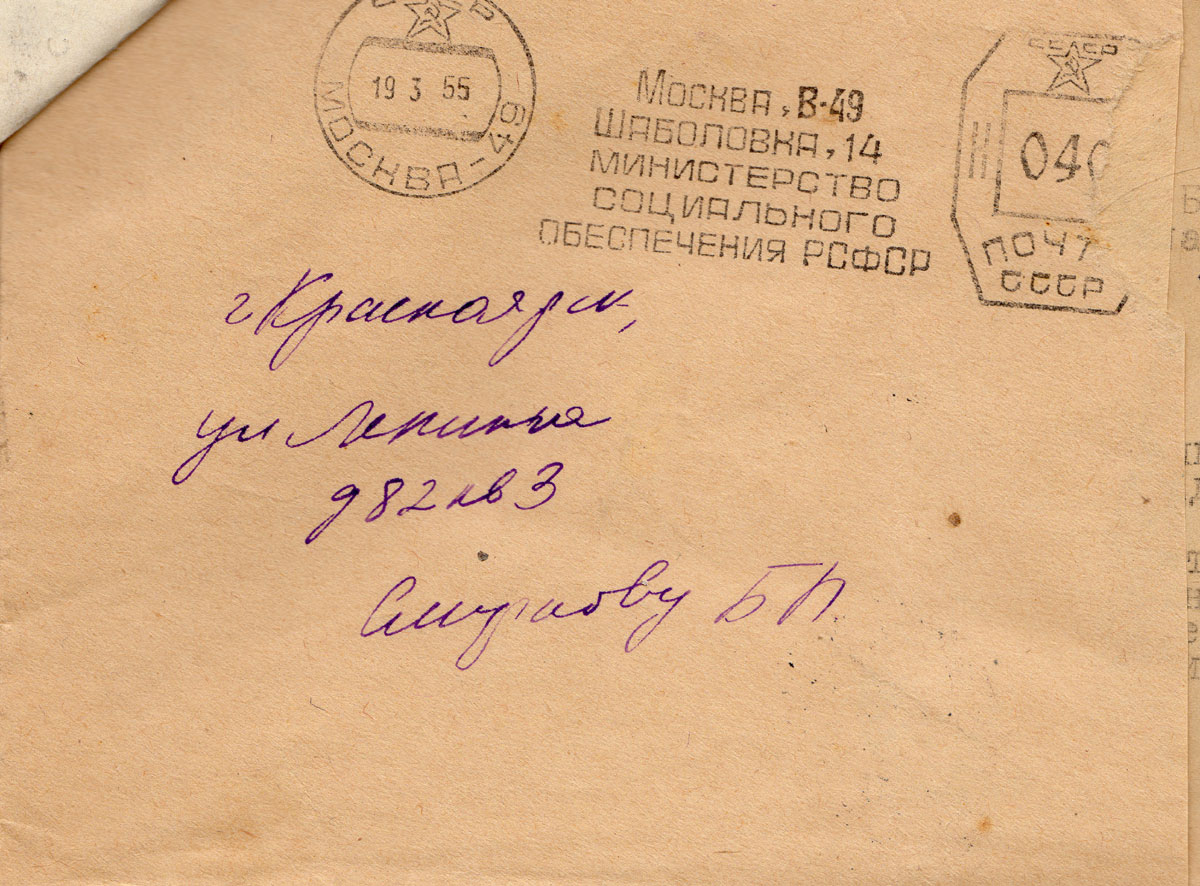 СССР
19 3 55
МОСКВА-49
МОСКВА, В-49
ШАБОЛОВКА, 14
МИНИСТЕРСТВО
СОЦИАЛЬНОГО
ОБЕСПЕЧЕНИЯ РСФСР
СССР
040
ПОЧТ
СССР
г Красноярск,
ул Ленина
д 82 кв 3
Смирнову Б П.